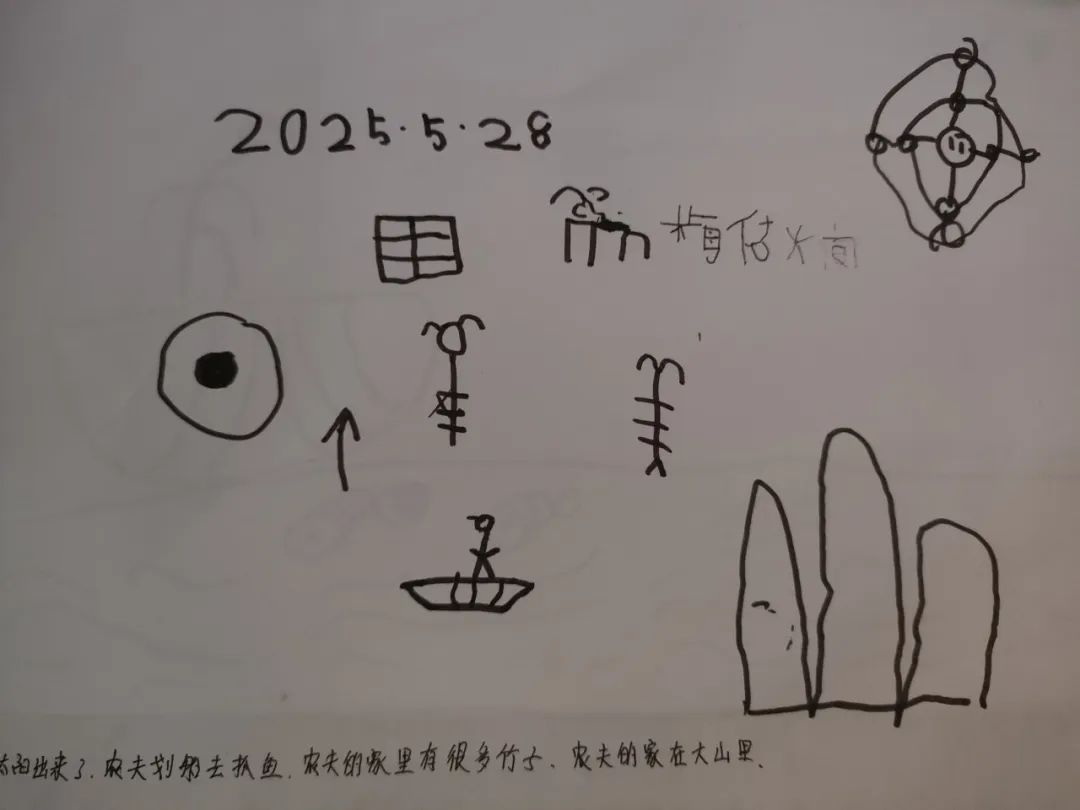 2025.5.28
梅估火高
太阳出来了.农夫划船去抓鱼.农夫的家里有很多竹子、农夫的家在大山里、